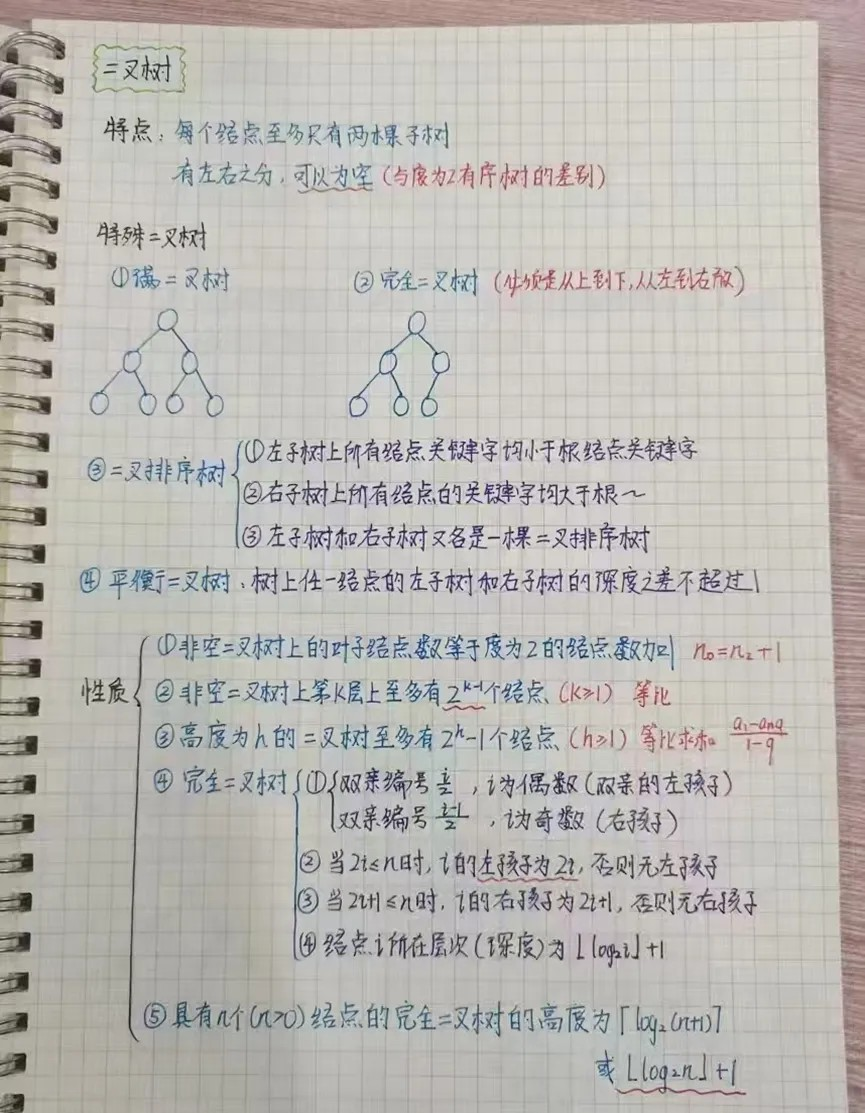 二叉树
特点：每个结点至多只有两棵子树
有左右之分，可以为空（与度为2有序树的差别）
特殊二叉树
①满二叉树 ②完全二叉树（必须是从上到下，从左到右散）
③二叉排序树
①左子树上所有结点关键字均小于根结点关键字
②右子树上所有结点的关键字均大于根～
③左子树和右子树又各是一棵二叉排序树
④平衡二叉树：树上任一结点的左子树和右子树的深度之差不超过1
性质
①非空二叉树上的叶子结点数等于度为2的结点数加1 n₀=n₂+1
②非空二叉树上第K层上至多有2^(k-1)个结点（K≥1）等比
③高度为h的二叉树至多有2^h-1个结点（h≥1）等比求和 (a₁-anq)/(1-q)
④完全二叉树
①双亲编号 i/2，i为偶数（双亲的左孩子）
双亲编号 (i-1)/2，i为奇数（右孩子）
②当2i≤n时，i的左孩子为2i，否则无左孩子
③当2i+1≤n时，i的右孩子为2i+1，否则无右孩子
④结点i所在层次（深度）为⌊log₂i⌋+1
⑤具有n个（n>0）结点的完全二叉树的高度为⌈log₂(n+1)⌉
或⌊log₂n⌋+1